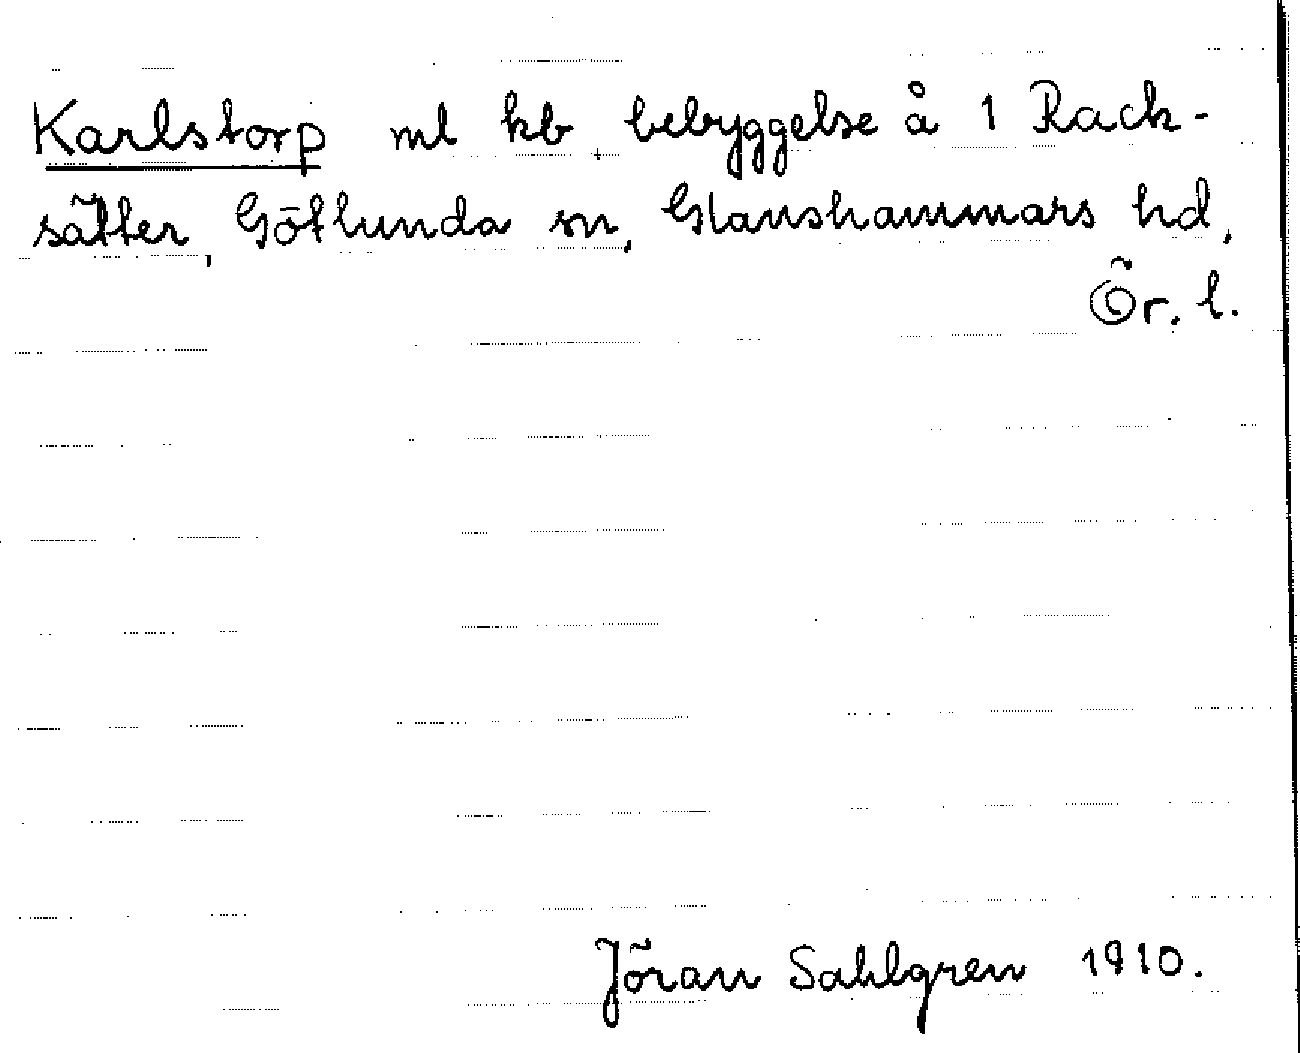 Karlstorp ml kb bebyggelse å 1 Rack-
sätter, Götlunda sn, Glanshammars hd,
Ör. l.
Jöran Sahlgren 1910.